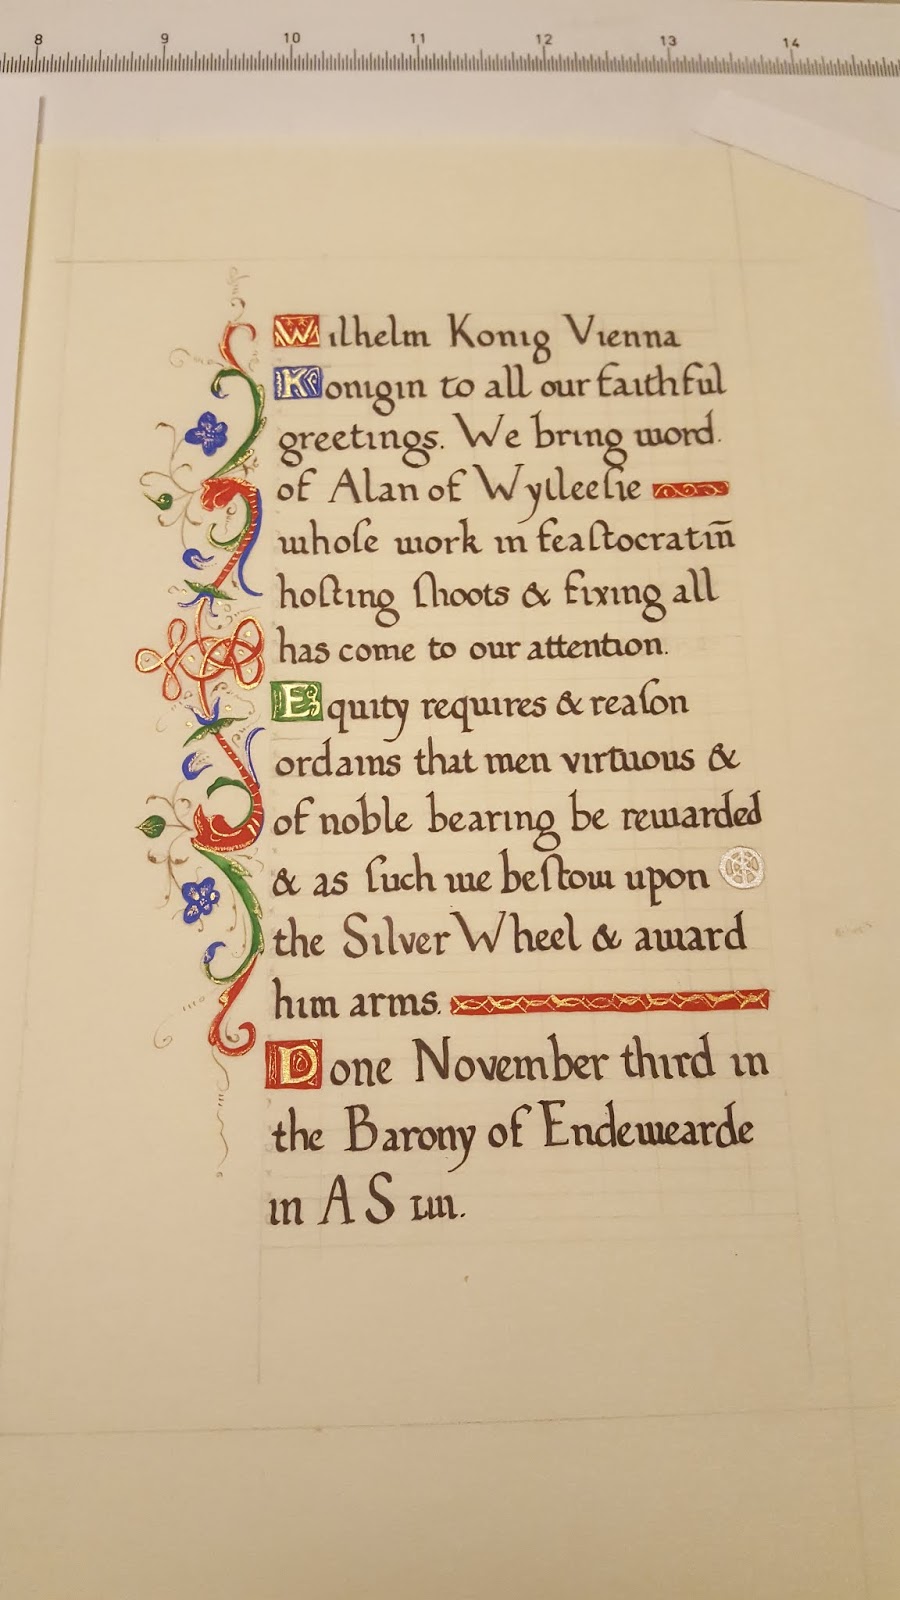 8 9 10 11 12 13 14
Wilhelm Konig Vienna
Konigin to all our faithful
greetings. We bring word.
of Alan of Wylleeſie
whoſe work in feaſtocratin̄
hoſting ſhoots & fixing all
has come to our attention.
Equity requires & reaſon
ordains that men virtuous &
of noble bearing be rewarded
& as ſuch we beſtow upon
the Silver Wheel & award
him arms.
Done November third in
the Barony of Endewearde
in A S Liii.